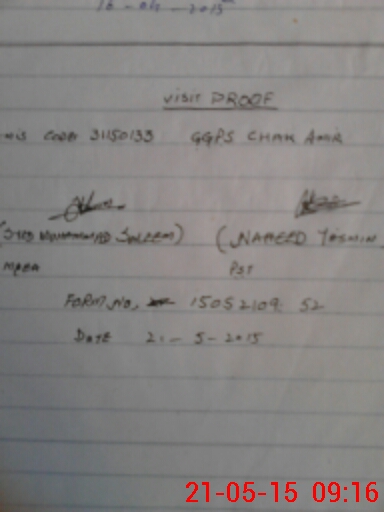 16 - 04 - 2015
VISIT PROOF
mis code: 31150133 GGPS CHAK Amir
MUHAMMAD SALEEM) (NAHEED YASMIN
MBEA PST
FORM NO, 15052109: 52
DATE 21 - 5 - 2015
21-05-15 09:16